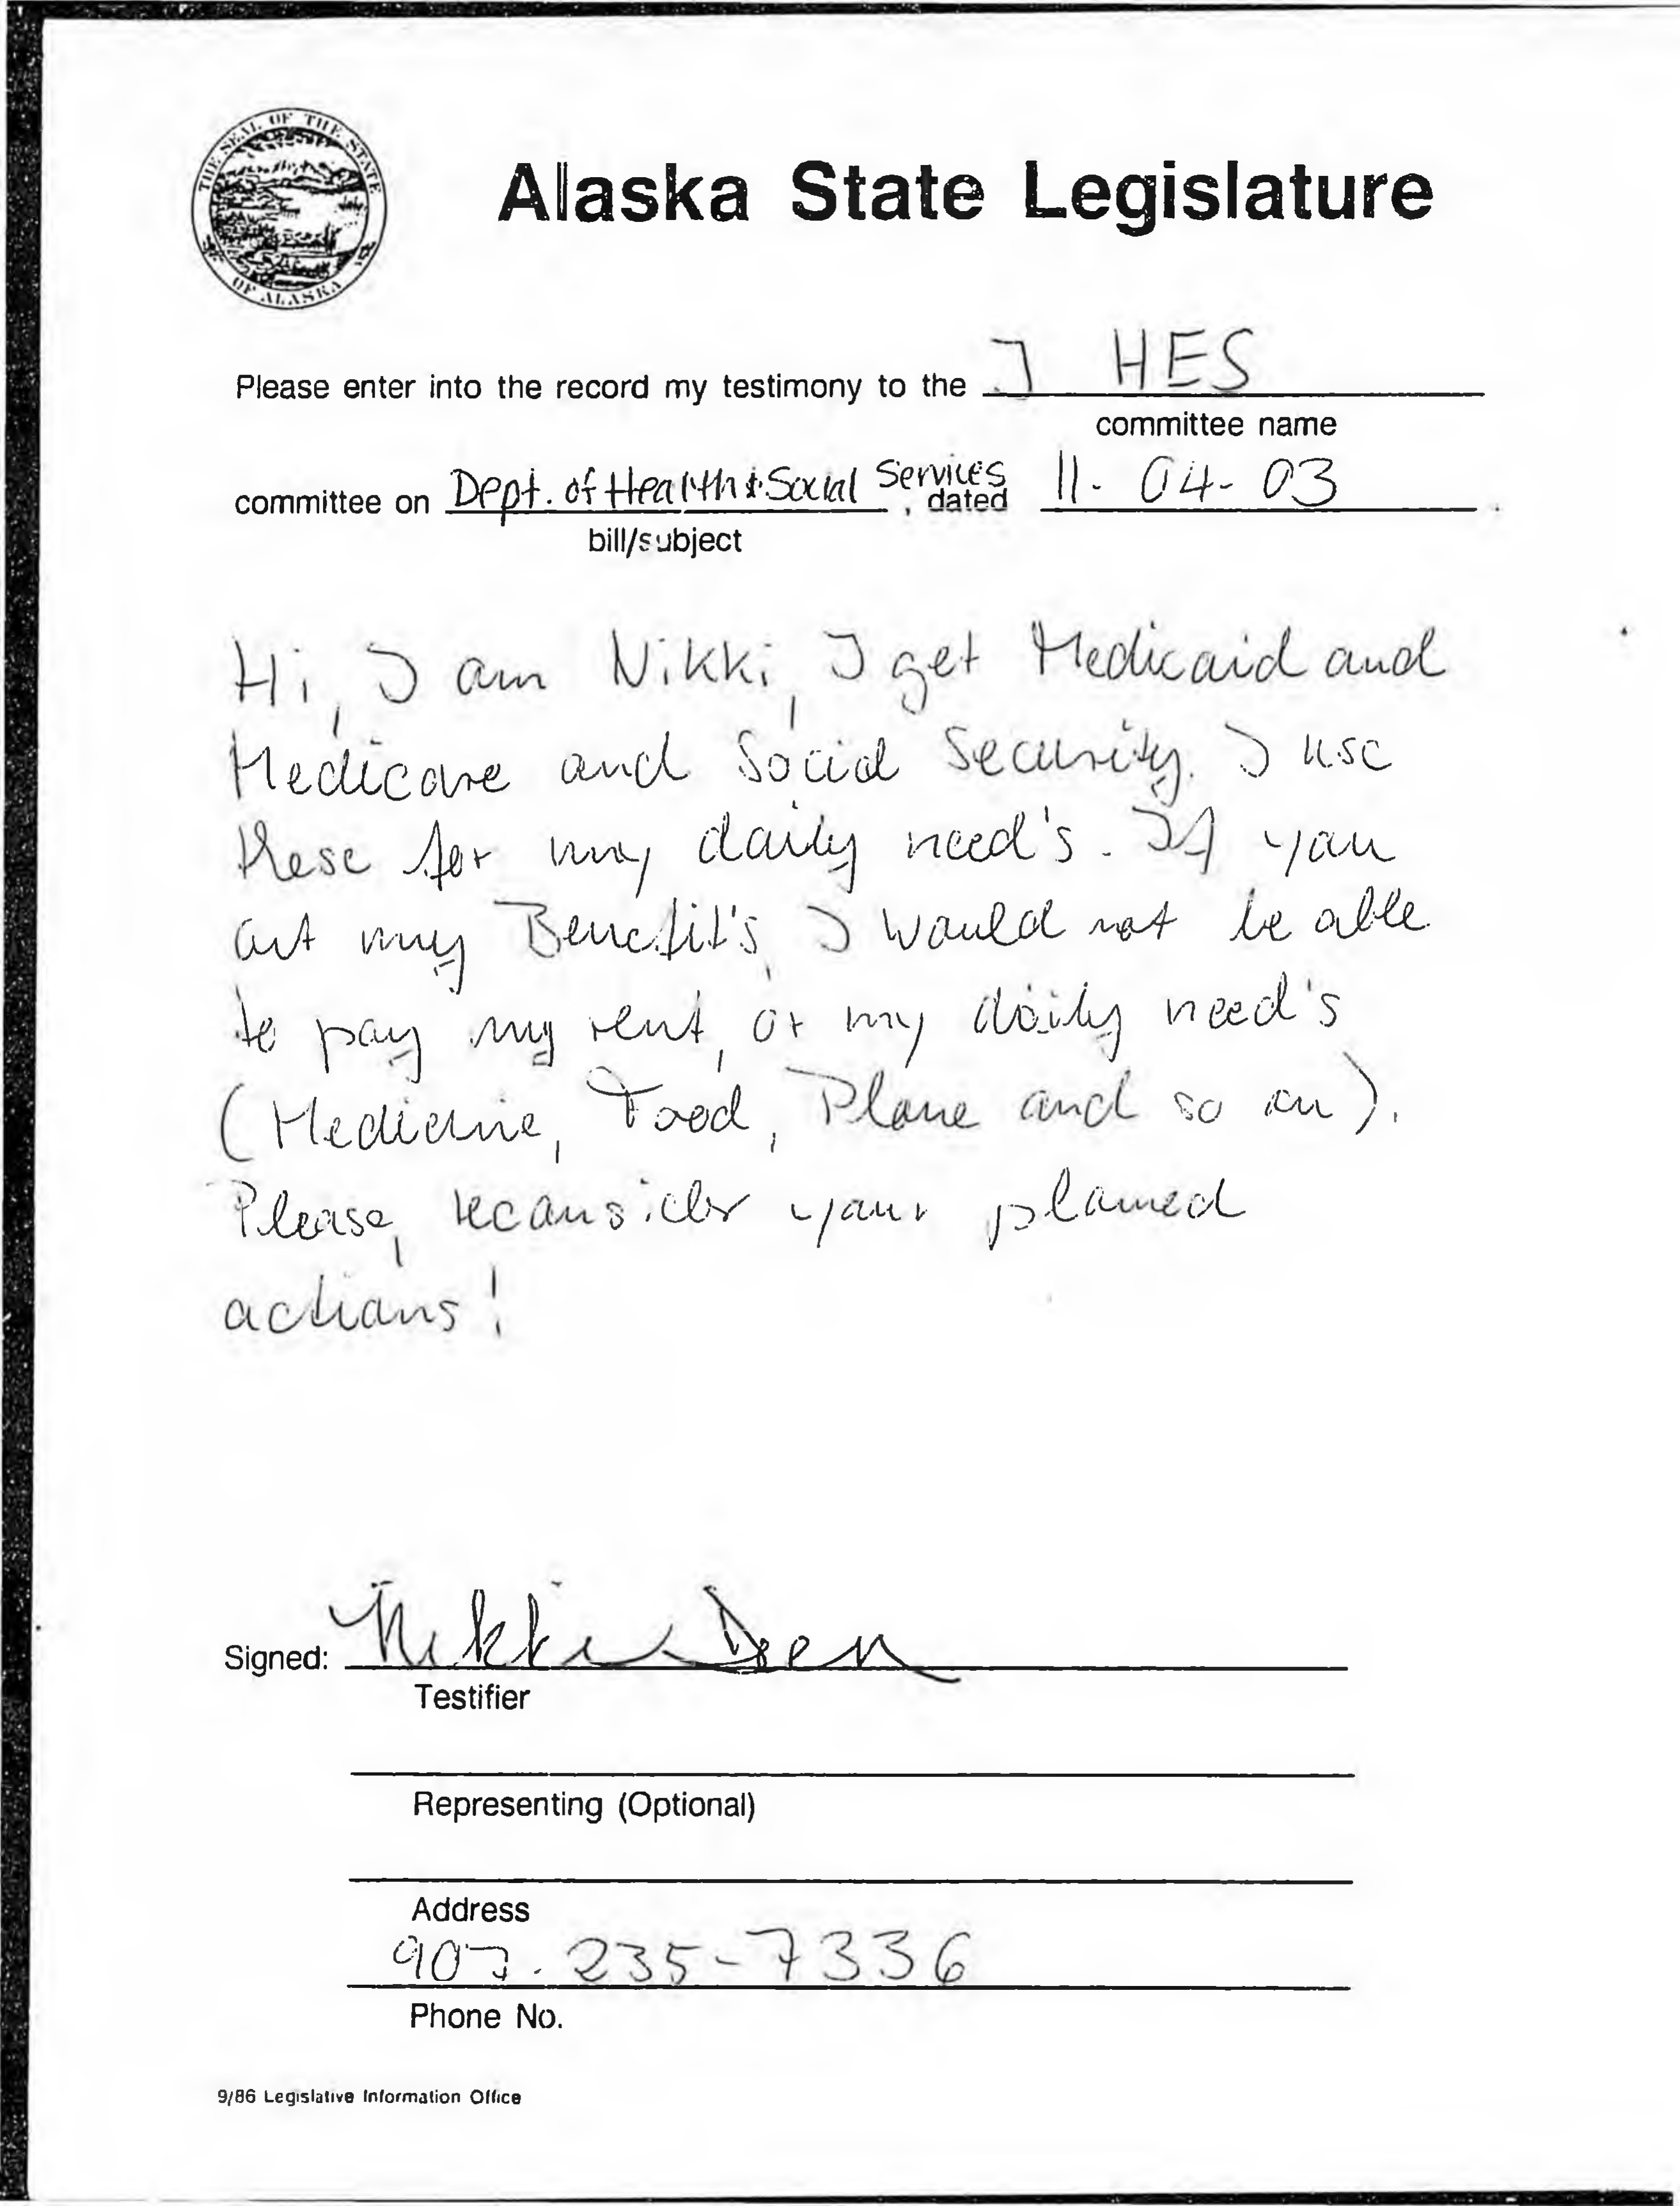 THE SEAL OF THE STATE
OF ALASKA
Alaska State Legislature
Please enter into the record my testimony to the J HES
committee name
committee on Dept. of Health & Social Services, dated 11-04-03.
bill/subject
Hi, I am Nikki, I get Medicaid and
Medicare and Social Security. I use
these for my daily need's. If you
cut my Benefit's, I would not be able
to pay my rent, or my daily need's
(Medicine, Food, Phone and so on).
Please, reconsider your planned
actions!
Signed: Nikki Deen
Testifier
Representing (Optional)
Address
907-235-7336
Phone No.
9/86 Legislative Information Office